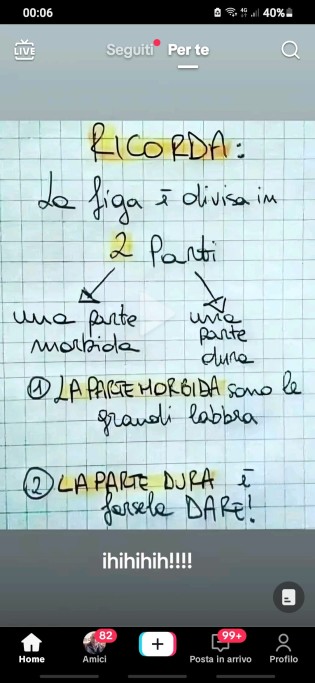 00:06
4G
40%
LIVE
Seguiti
Per te
RICORDA:
La figa è divisa in
2 Parti
una parte
morbida
una
parte
dura
① LA PARTE MORBIDA sono le
grandi labbra
② LA PARTE DURA è
farsela DARE!
ihihihih!!!!
82
99+
Home
Amici
Posta in arrivo
Profilo